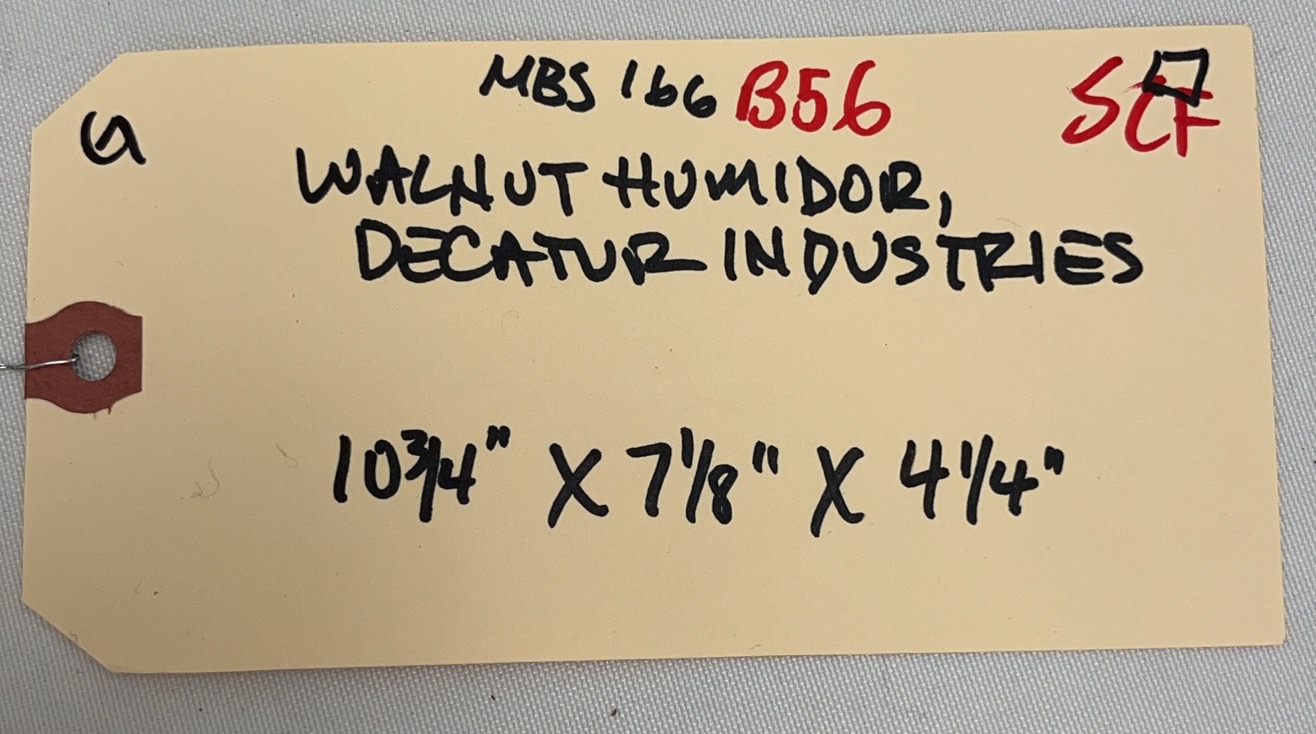 MBS 166 B56 SCF
G
WALNUT HUMIDOR,
DECATUR INDUSTRIES
10 3/4" X 7 1/8" X 4 1/4"